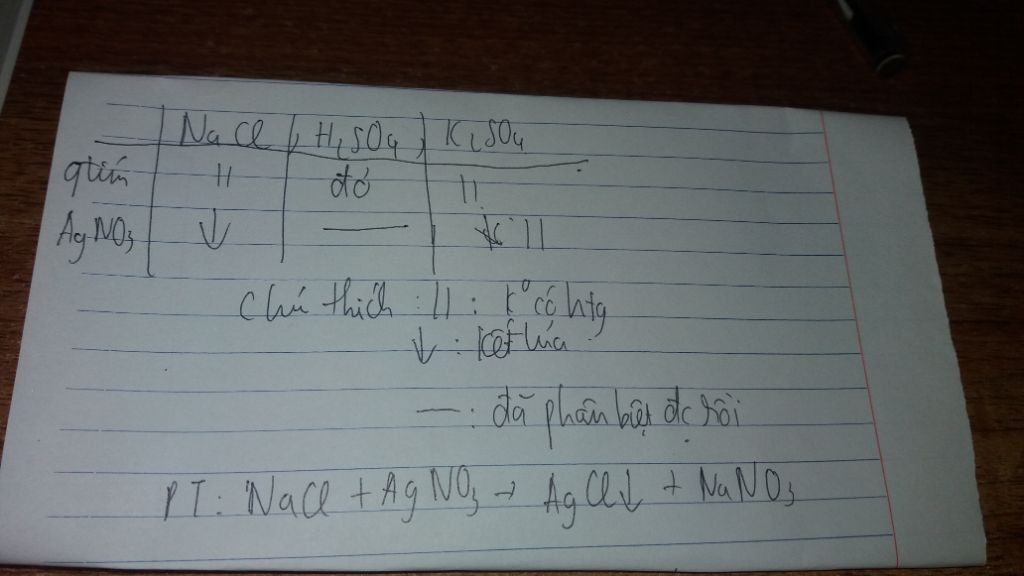 NaCl, H₂SO₄, K₂SO₄
qtím || đỏ ||
AgNO₃ ↓ — ||
Chú thích : || : K° có htg
↓ : Kết tủa
— : đã phân biệt đc rồi
PT: NaCl + AgNO₃ → AgCl↓ + NaNO₃